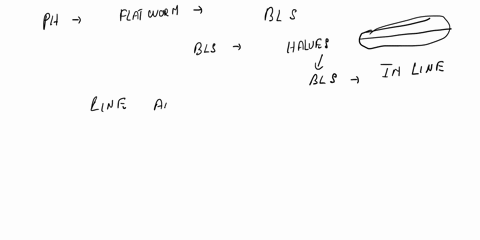 PH → FLATWORM → BLS
BLS → HALVES
↓
BLS → IN LINE
LINE A